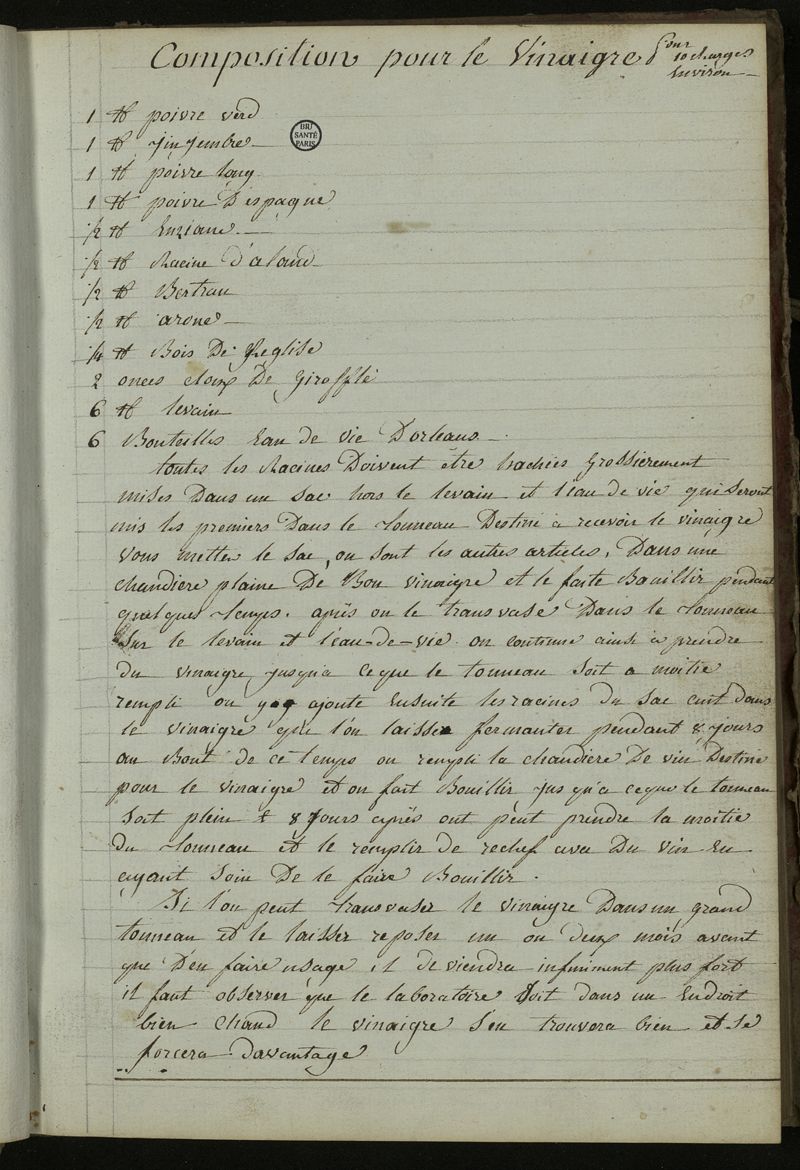 Composition pour le Vinaigre Pour
10 charges
Environ
1 ℔ poivre verd
1 ℔ jinjembre
BIU
SANTÉ
PARIS
1 ℔ poivre long
1 ℔ poivre D'espagne
1/2 ℔ Enziane
1/2 ℔ Racine d'aland
1/2 ℔ Bertran
1/2 ℔ arone
1/4 ℔ Bois De Reglise
2 onces cloux De Girofflé
6 ℔ levain
6 Bouteilles Eau de vie D'orleans
toutes les Racines Doivent être hachées Grossierement
mises Dans un sac hors le levain et l'eau de vie qui seront
mis les premiers Dans le tonneau Destiné a recevoir le vinaigre
vous mettez le sac, ou sont les autres articles, Dans une
chaudiere plaine De Bon vinaigre et le faite Bouillir pendant
quelques temps. après on le transvase Dans le tonneau
sur le levain et l'eau-de-vie on continue ainsi a prendre
du vinaigre jusqu'a ceque le tonneau soit a moitié
rempli on y ajoute Ensuite les racines du sac cuit dans
le vinaigre que l'on laisse fermanter pendant 8 jours
au Bout de ce temps on rempli la chaudiere De vin Destiné
pour le vinaigre et on fait Bouillir jusqu'a ceque le tonneau
soit plein & 8 jours après ont peut prendre la moitié
du tonneau et le remplir de rechef avec Du vin En
ayant soin De le faire Bouillir.
Si l'on peut transvaser le vinaigre Dans un grand
tonneau et le laisser reposer un ou deux mois avant
que D'en faire usage il deviendra infiniment plus fort
il faut observer que le laboratoire soit dans un Endroit
bien chaud le vinaigre s'en trouvera bien et se
forcera davantage